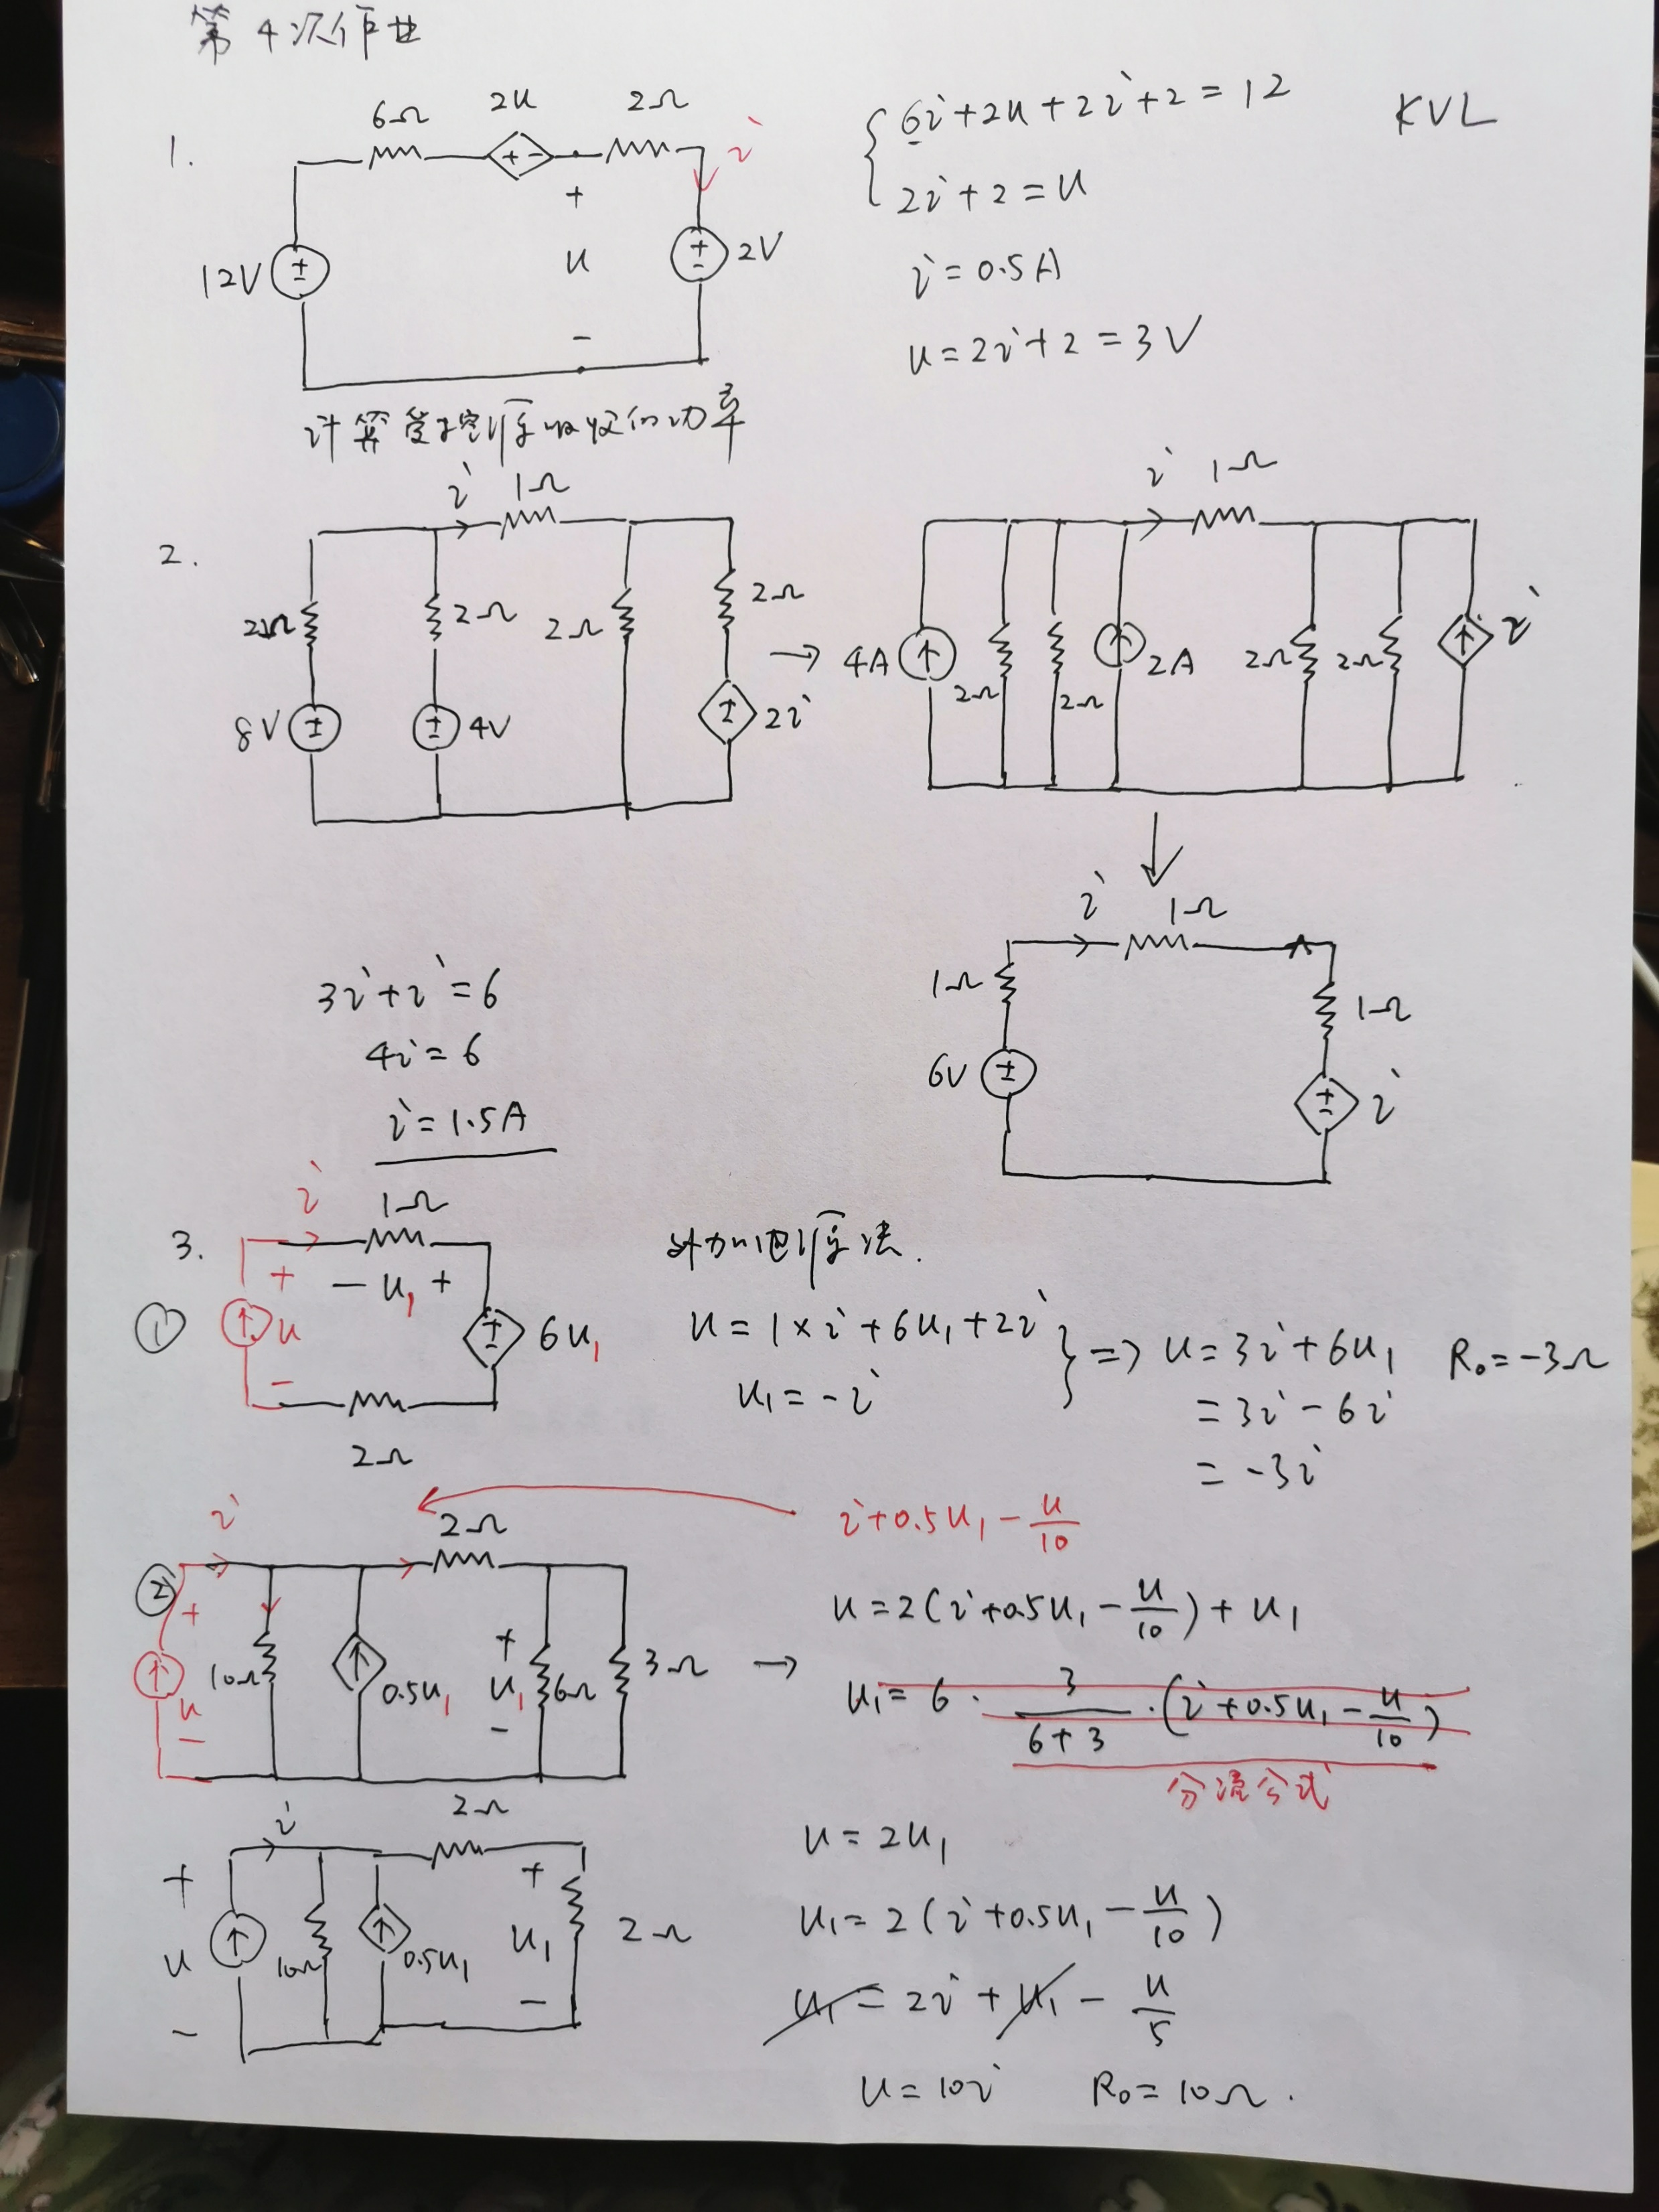 第4次作业
1.
6Ω 2u 2Ω
i
+ -
+
12V ± u ± 2V
-
{ 6i+2u+2i+2=12 KVL
2i+2=u
i=0.5A
u=2i+2=3V
计算受控源吸收的功率
2.
i 1Ω
2Ω 2Ω 2Ω 2Ω
8V ± 4V ± 2i
→
i 1Ω
4A 2Ω 2Ω 2A 2Ω 2Ω i
i 1Ω
1Ω 1Ω
6V ± ± i
3i+i=6
4i=6
i=1.5A
3.
①
i 1Ω
+ - u₁ +
u ± 6u₁
-
2Ω
外加电源法.
u=1×i+6u₁+2i } => u=3i+6u₁ R₀=-3Ω
u₁=-i =3i-6i
=-3i
②
i 2Ω
+ +
u 10Ω 0.5u₁ u₁ 6Ω 3Ω →
- -
i+0.5u₁-u/10
u=2(i+0.5u₁-u/10)+u₁
u₁=6·3/(6+3)·(i+0.5u₁-u/10)
分流公式
i 2Ω
+ +
u 10Ω 0.5u₁ u₁ 2Ω
- -
u=2u₁
u₁=2(i+0.5u₁-u/10)
u₁=2i+u₁-u/5
u=10i R₀=10Ω.